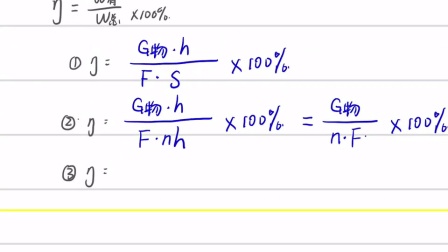 η = W有/W总 ×100%.
① η = G物·h/F·S ×100%.
② η = G物·h/F·nh ×100% = G物/n·F ×100%
③ η =